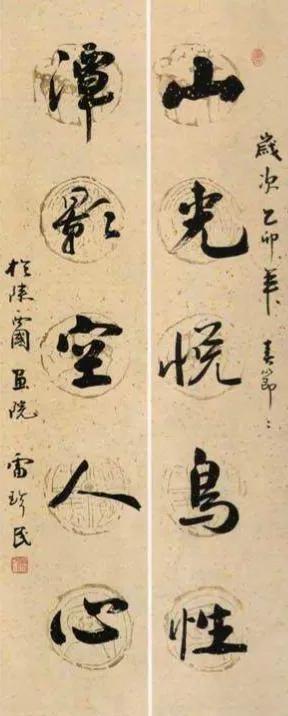 歲次乙卯年春節
山光悦鳥性
潭影空人心
於陕西國画院 雷珍民